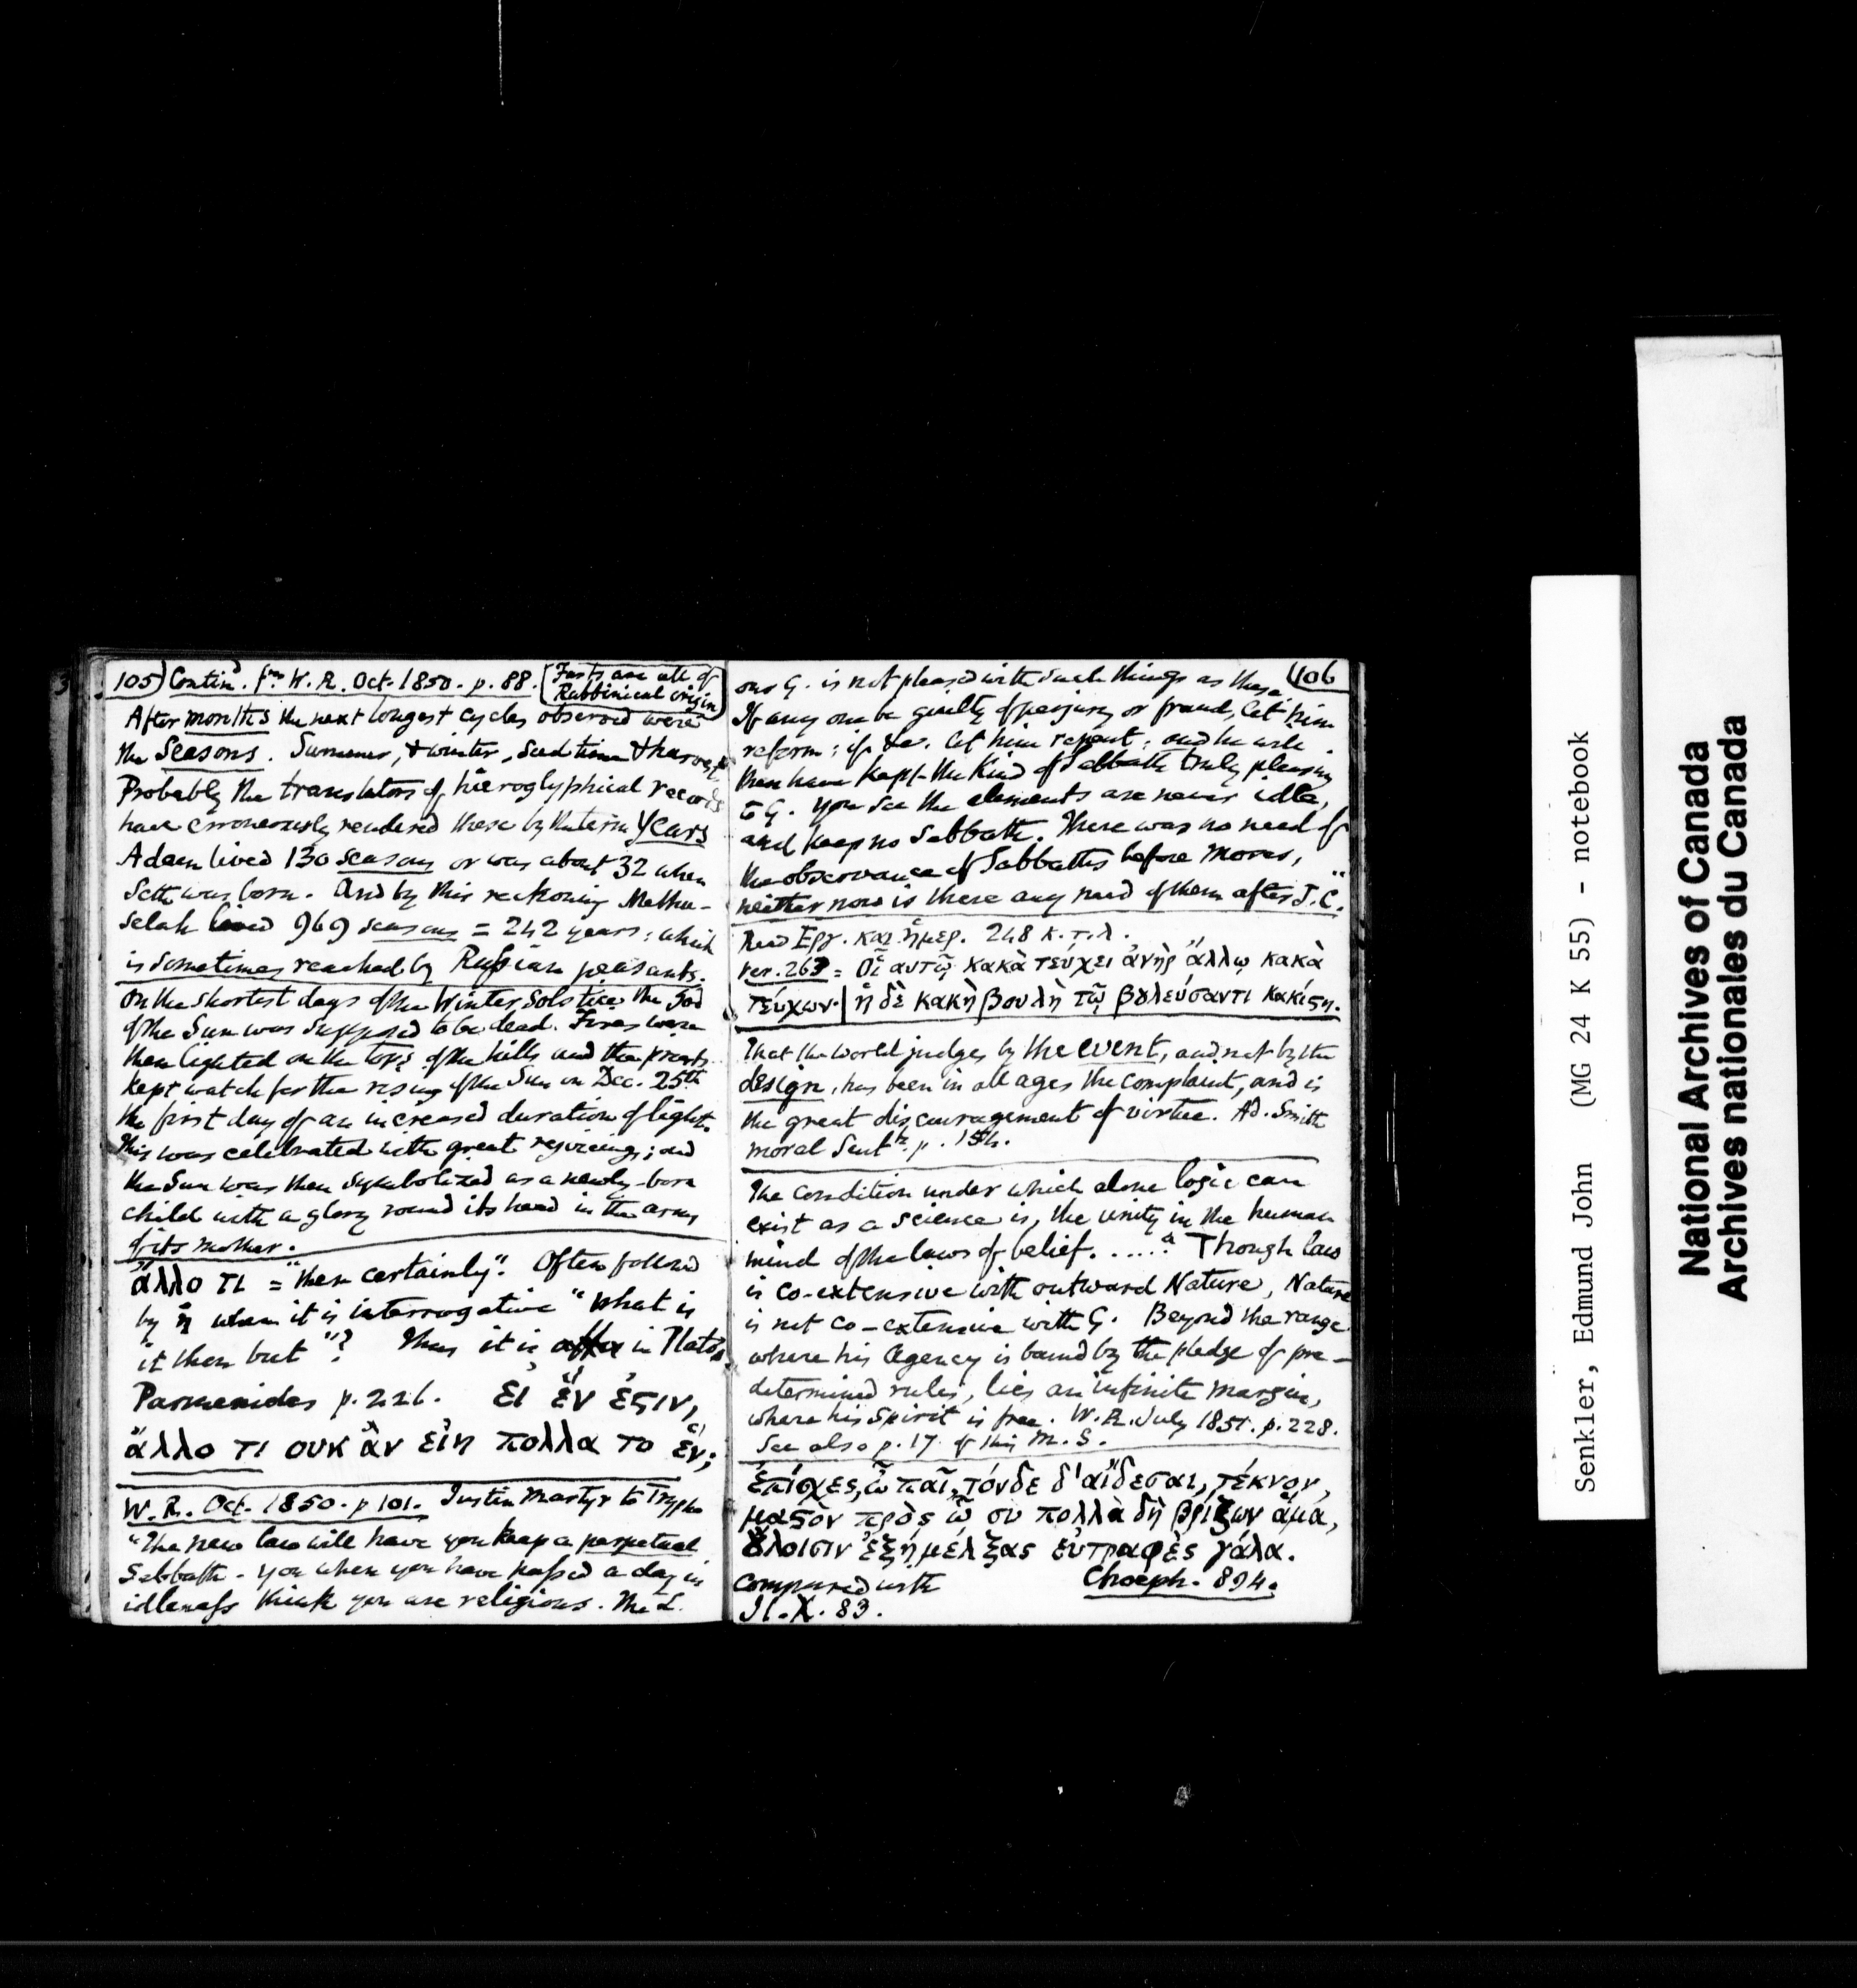 105) Contin^d. f^m W. R. Oct. 1850. p. 88. (Fasts are all of
Rabbinical origin)
After months the next longest cycles observed were
the Seasons. Summer, & winter, seed time & harvest
Probably the translators of hieroglyphical records
have erroneously rendered these by the term Years
Adam lived 130 seasons or was about 32 when
Seth was born. And by this reckoning Methu-
selah lived 969 seasons = 242 years: which
is sometimes reached by Russian peasants.
On the shortest days of the Winter Solstice the God
of the Sun was supposed to be dead. Fires were
then lighted on the tops of the hills and the priests
kept watch for the rising of the Sun on Dec. 25th
the first day of an increased duration of light.
This was celebrated with great rejoicings; and
the Sun was then symbolized as a newly-born
child with a glory round its head in the arms
of its mother.
ἄλλο τι = "then certainly". Often followed
by ἢ when it is interrogative "What is
it then but"? Thus it is in Plato's
Parmenides p. 226. εἰ ἕν ἐςιν,
ἄλλο τι ουκ ἂν εἰη πολλα το ἕν;
W. R. Oct. 1850. p 101. Justin Martyr to Trypho
"The new law will have you keep a perpetual
Sabbath - you when you have passed a day in
idleness think you are religious. The L.
406
our G. is not pleased with such things as these.
If any one be guilty of perjury or fraud, let him
reform: if &c. let him repent: and he will
then have kept the kind of Sabbath truly pleasing
to G. You see the elements are never idle,
and keep no Sabbath. There was no need of
the observance of Sabbaths before Moses,
neither now is there any need of them after J.C."
Read Εργ. και ἡμερ. 248 κ.τ.λ.
ver. 263 = Οἷ αυτῷ κακὰ τεύχει ἀνὴρ ἄλλῳ κακὰ
τεύχων·| ἡ δὲ κακὴ βουλὴ τῷ βȣλεύσαντι κακίςη.
That the world judges by the event, and not by the
design, has been in all ages the complaint, and is
the great discouragement of virtue. Ad. Smith
moral Sent^ts. p. 154.
The condition under which alone logic can
exist as a science is, the unity in the human
mind of the laws of belief. ..... Though law
is co-extensive with outward Nature, Nature
is not co-extensive with G. Beyond the range
where his Agency is bound by the pledge of pre-
determined rules, lies an infinite margin,
where his Spirit is free. W. R. July 1851. p. 228.
See also p. 17 of this M. S.
ἐπίσχες, ὦ παῖ, τόνδε δ' αἴδεσαι, τέκνον,
μαςὸν πρὸς ᾧ συ πολλὰ δὴ βρίζων ἅμα,
ȣ̓λοισιν ἐξήμελξας εὐτραφὲς γάλα.
compared with Choeph. 894.
Il. X. 83.
Senkler, Edmund John (MG 24 K 55) - notebook
National Archives of Canada
Archives nationales du Canada